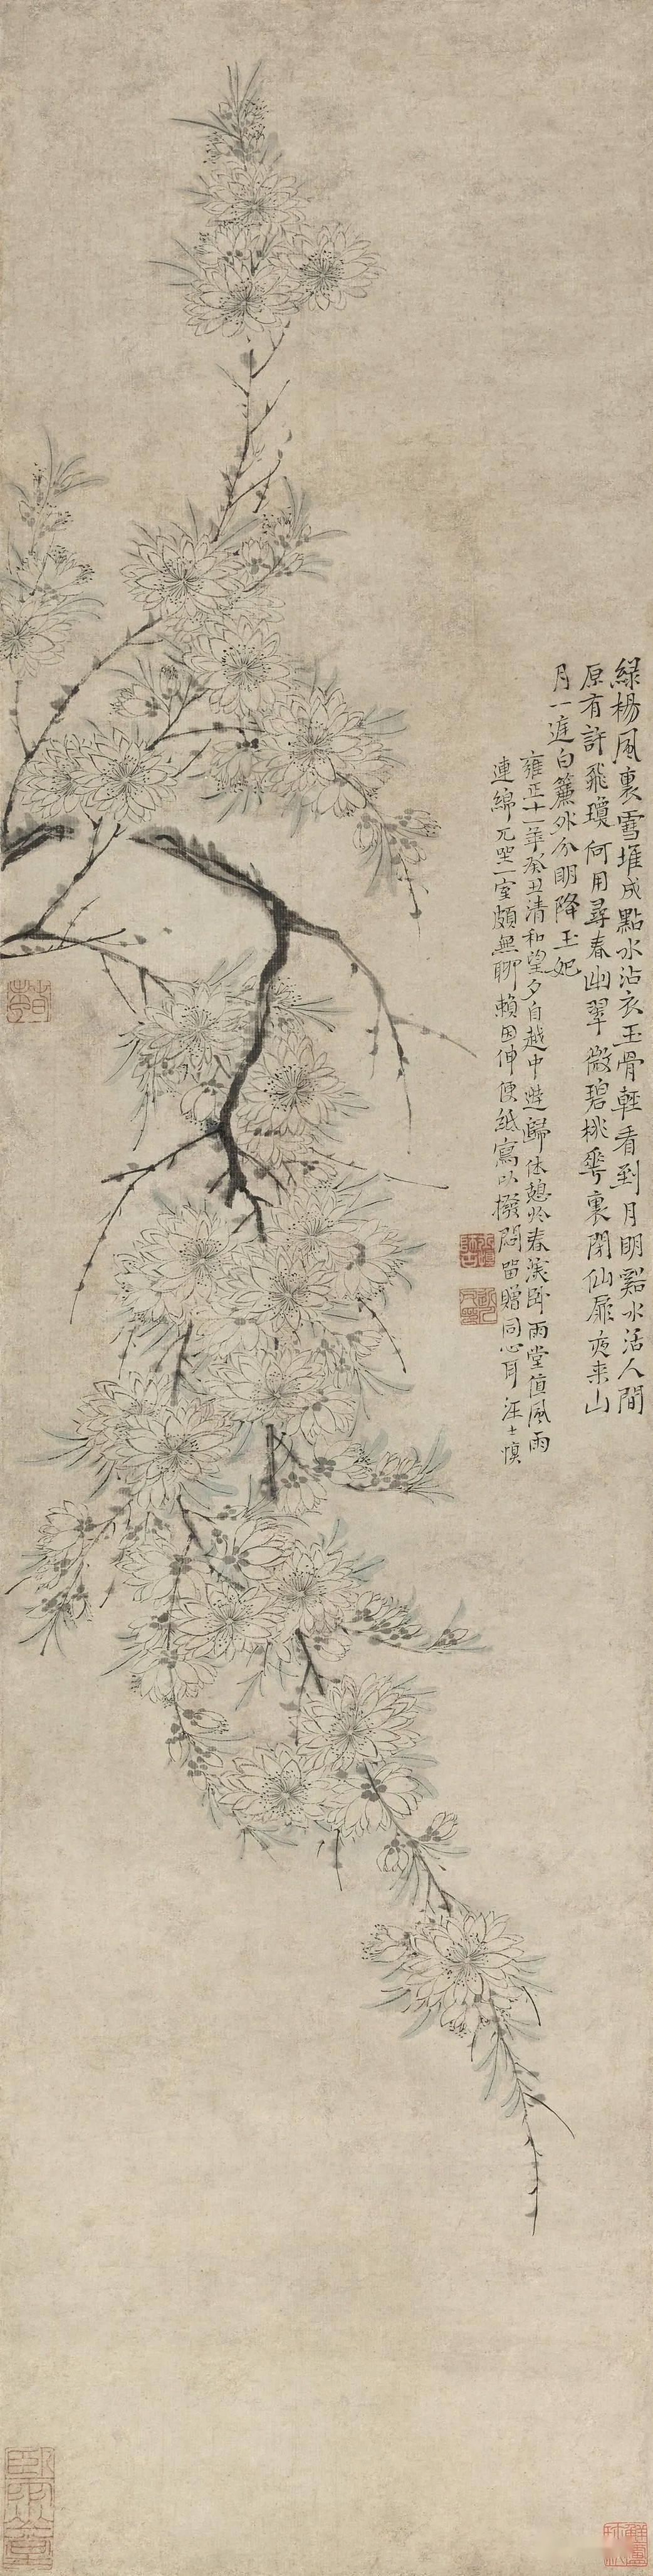 綠楊風裏雪堆成點水沾衣玉骨輕看到月明谿水活人間
原有許飛瓊何用尋春幽翠微碧桃華裏閉仙扉夜来山
月一遮白簾外分明降玉妃
雍正十一年癸丑清和望夕自越中遊歸休憩於春溪卧雨堂值風雨
連綿兀坐一室頗無聊賴因伸便紙寫以撥悶留贈同心耳汪士慎